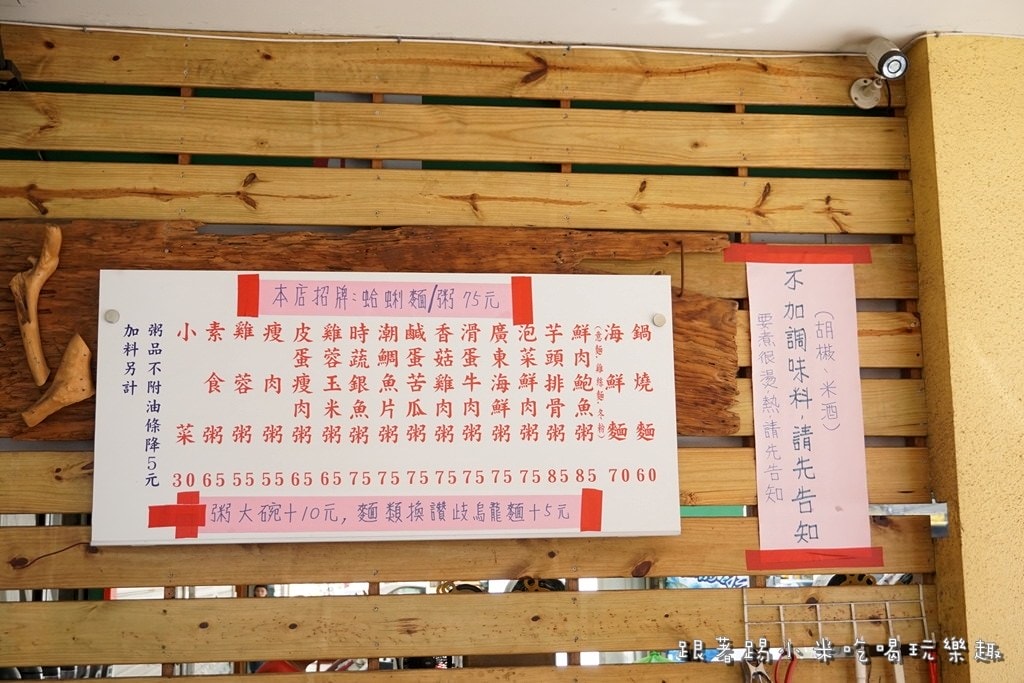 本店招牌:蛤蜊麵/粥 75元
鍋燒麵 60
海鮮麵 70
(意麵、雞絲麵、冬粉)
鮮肉鮑魚粥 85
芋頭排骨粥 85
泡菜鮮肉粥 75
廣東海鮮粥 75
滑蛋牛肉粥 75
香菇雞肉粥 75
鹹蛋苦瓜粥 75
潮鯛魚片粥 75
時蔬銀魚粥 75
雞蓉玉米粥 65
皮蛋瘦肉粥 65
瘦肉粥 55
雞蓉粥 55
素食粥 65
小菜 30
粥品不附油條降5元
加料另計
粥大碗+10元,麵類換讚歧烏龍麵+5元
(胡椒、米酒)
不加調味料,請先告知
要煮很燙熱,請先告知
跟著踢小米吃喝玩樂趣